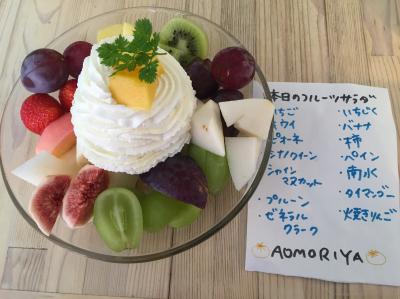 本日のフルーツサラダ
いちご
キウイ
ピオーネ
シナノクイーン
シャイン
マスカット
・プルーン
・ゼネラル
クラーク
・いちじく
・バナナ
・柿
・ペイン
・南水
・タイマンゴー
・焼きりんご
AOMORIYA